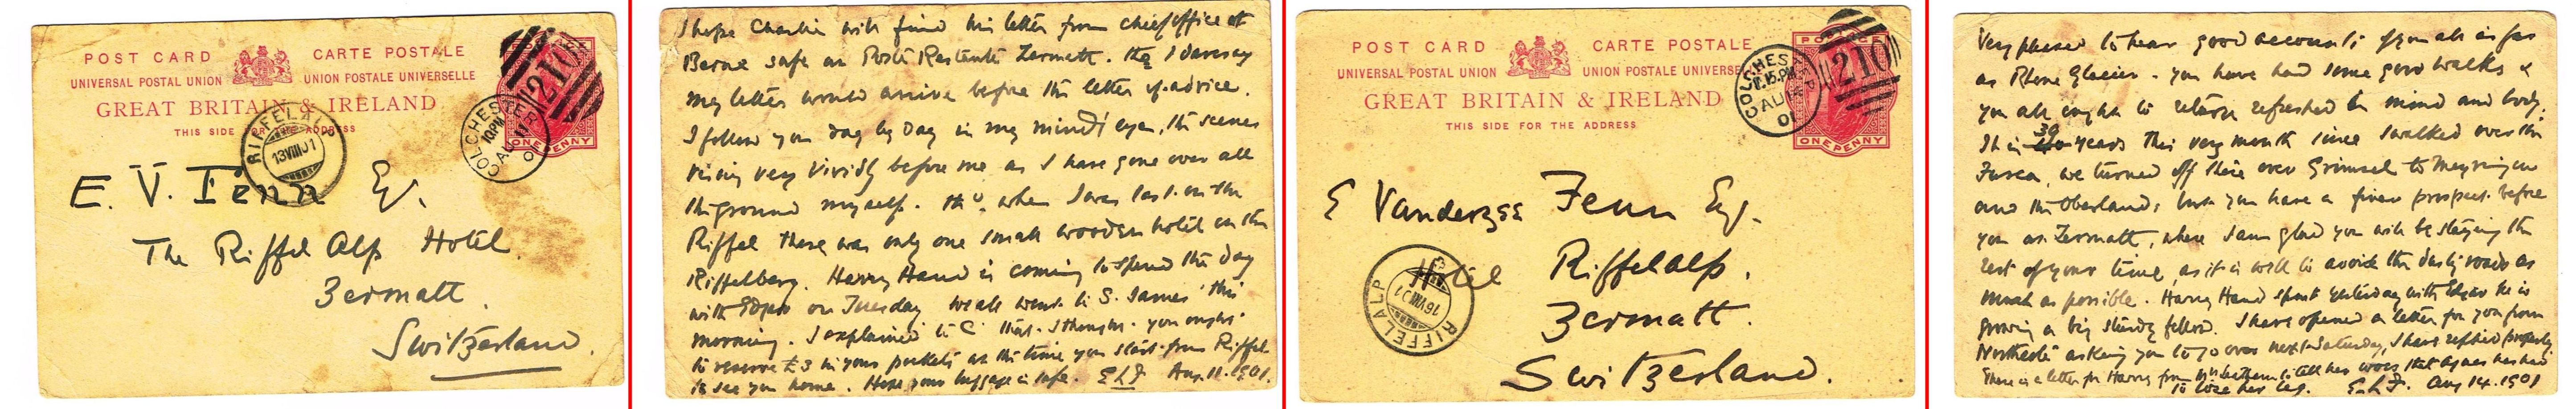 POST CARD CARTE POSTALE
UNIVERSAL POSTAL UNION UNION POSTALE UNIVERSELLE
GREAT BRITAIN & IRELAND
THIS SIDE FOR THE ADDRESS
ONE PENNY
210
COLCHESTER
10.PM
AU 11
01
RIFFELALP
13VIII01
E. V. Fenn Esq.
The Riffel Alp Hotel
Zermatt.
Switzerland.
I hope Charlie will find his letter from chief office at
Berne safe on Poste Restante Zermatt. tho I daresay
my letter would arrive before the letter of advice.
I follow you day by day in my mind's eye, the scenes
rising very vividly before me as I have gone over all
the ground myself. tho' when I was last on the
Riffel there was only one small wooden hotel on the
Riffelberg. Harry Hand is coming to spend the day
with Edgar on Tuesday we all went to S. James' this
morning. I explained to C. that I thought you ought
to reserve £3 in your pockets at the time you start from Riffel
to see you home. Hope your luggage is safe. E L F Aug. 11. 1901.
POST CARD CARTE POSTALE
UNIVERSAL POSTAL UNION UNION POSTALE UNIVERSE
GREAT BRITAIN & IRELAND
THIS SIDE FOR THE ADDRESS
POSTAGE
ONE PENNY
210
COLCHESTER
15.PM
AU
01
E Vanderzee Fenn Esq.
Hotel Riffelalp.
Zermatt.
Switzerland.
RIFFELALP
16VIII01
Very pleased to hear good accounts of you all as far
as Rhone Glacier. you have had some good walks &
you all ought to return refreshed in mind and body.
It is 39 years this very month since I walked over the
Furca, we turned off there over Grimsel to Meyringen
and the Oberland; but you have a finer prospect before
you at Zermatt, where I am glad you will be staying the
rest of your time, as it is well to avoid the dusty roads as
much as possible. Harry Hand spent yesterday with Edgar he is
growing a big sturdy fellow. I have opened a letter for you from
asking you to go over next Saturday, I have replied properly
There is a letter for Harry from to tell her cross that Agnes has had
to lose her leg. E. L. F. Aug 14. 1901